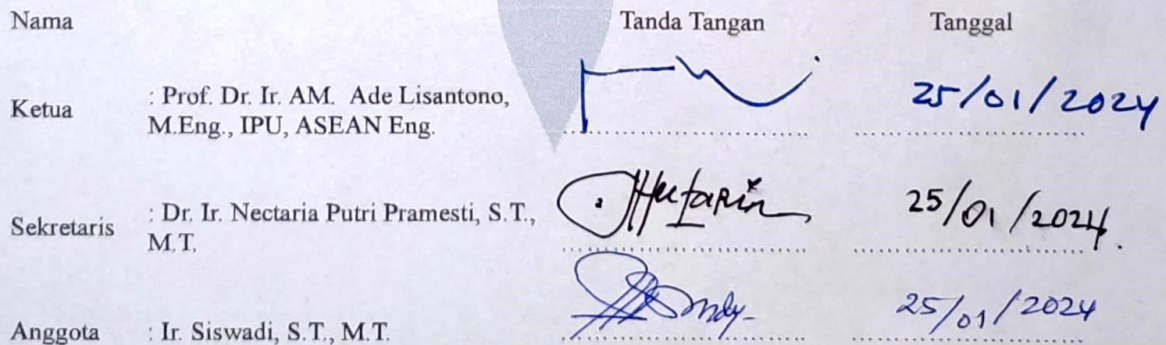 Nama Tanda Tangan Tanggal
Ketua : Prof. Dr. Ir. AM. Ade Lisantono, 25/01/2024
M.Eng., IPU, ASEAN Eng.
Sekretaris : Dr. Ir. Nectaria Putri Pramesti, S.T., 25/01/2024.
M.T.
Anggota : Ir. Siswadi, S.T., M.T. 25/01/2024